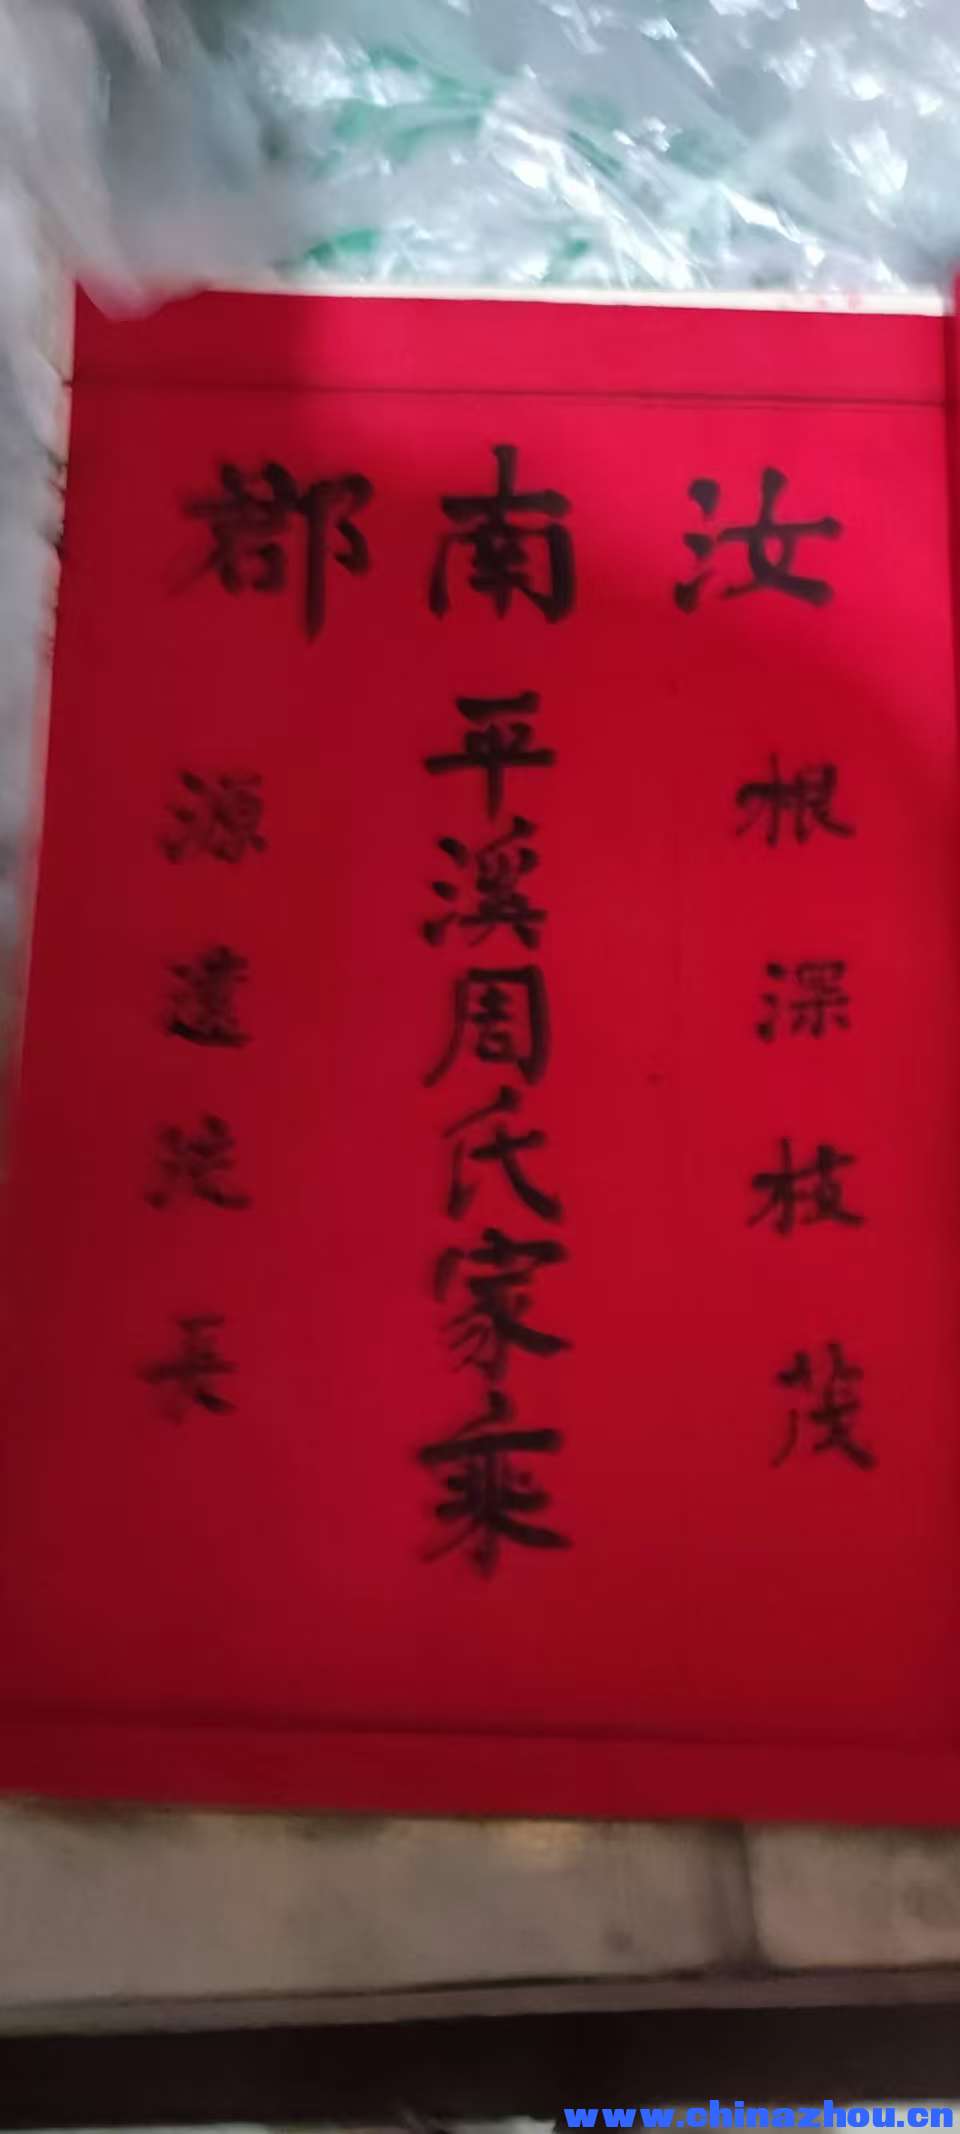 汝南郡
根深枝茂
平溪周氏家乘
源遠流長
www.chinazhou.cn